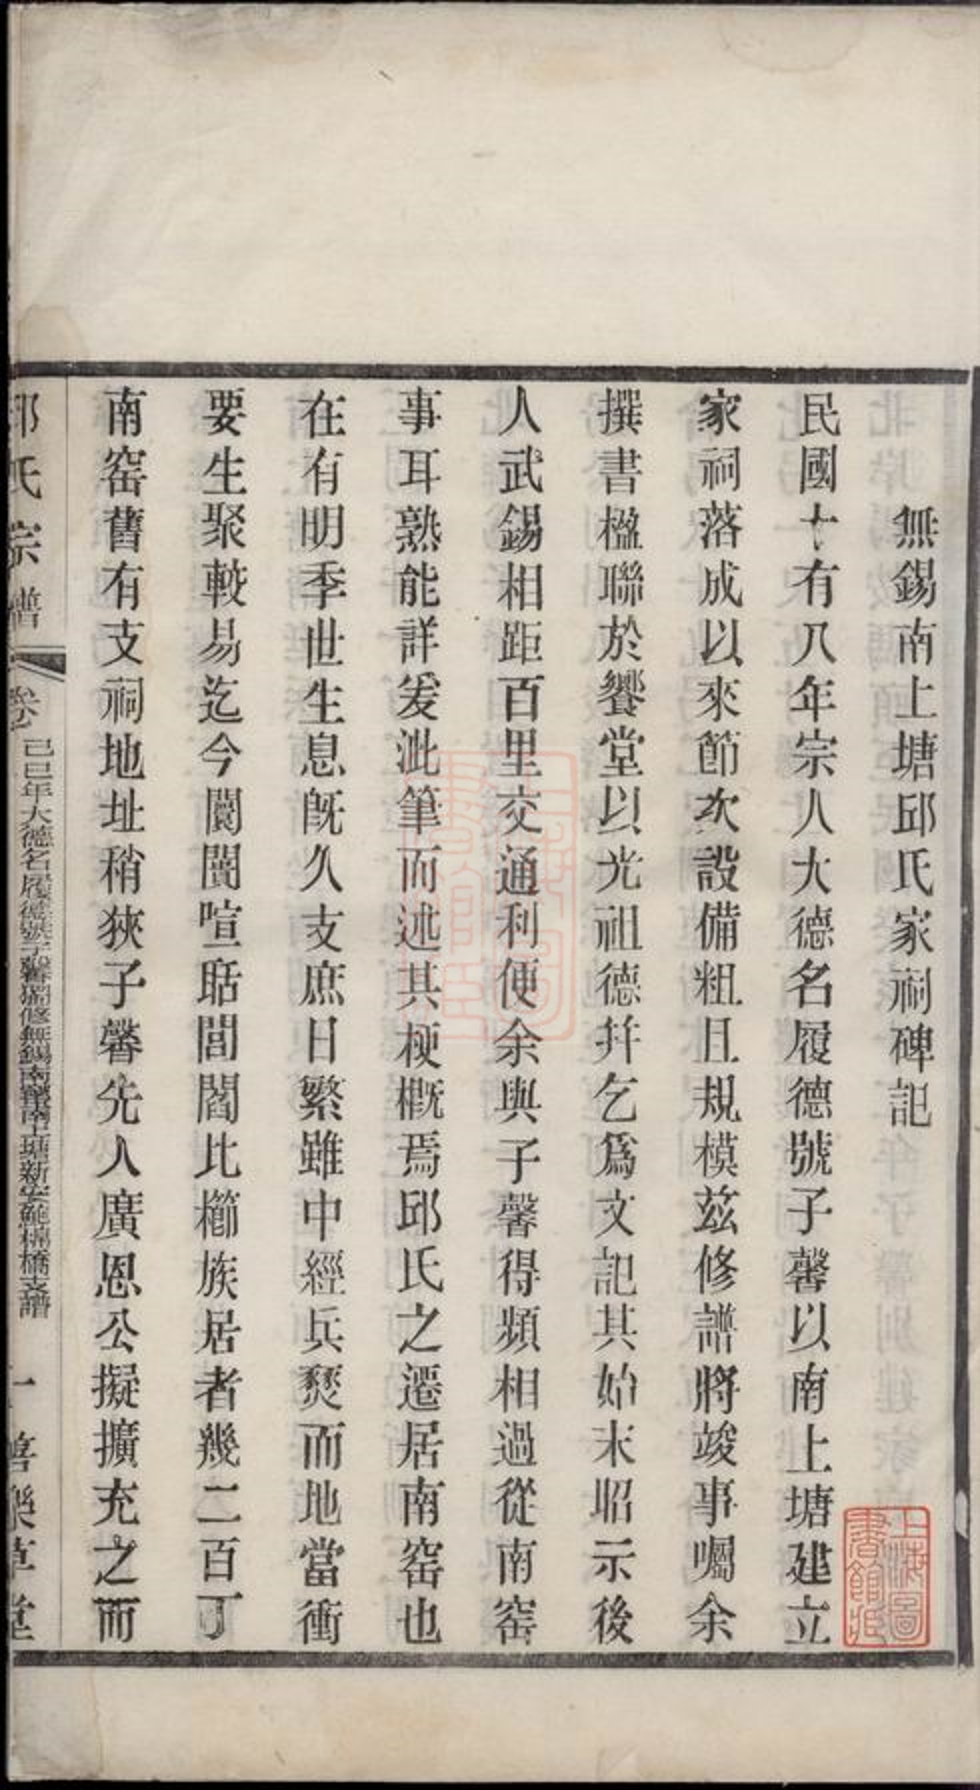 無錫南上塘邱氏家祠碑記
民國十有八年宗人大德名履德號子馨以南上塘建立
家祠落成以來節次設備粗具規模茲修譜將竣事囑余
撰書楹聯於饗堂以光祖德幷乞爲文記其始末昭示後
人武錫相距百里交通利便余與子馨得頻相過從南窰
事耳熟能詳爰泚筆而述其梗概焉邱氏之遷居南窰也
在有明季世生息既久支庶日繁雖中經兵燹而地當衝
要生聚較易迄今闤闠喧聒閭閻比櫛族居者幾二百丁
南窑舊有支祠地址稍狹子馨先人廣恩公擬擴充之而
邱氏宗譜
卷
己巳年大德名履德號子馨獨修無錫南窰南上塘新安
橋支譜
一
善樂草堂
上海圖書館藏